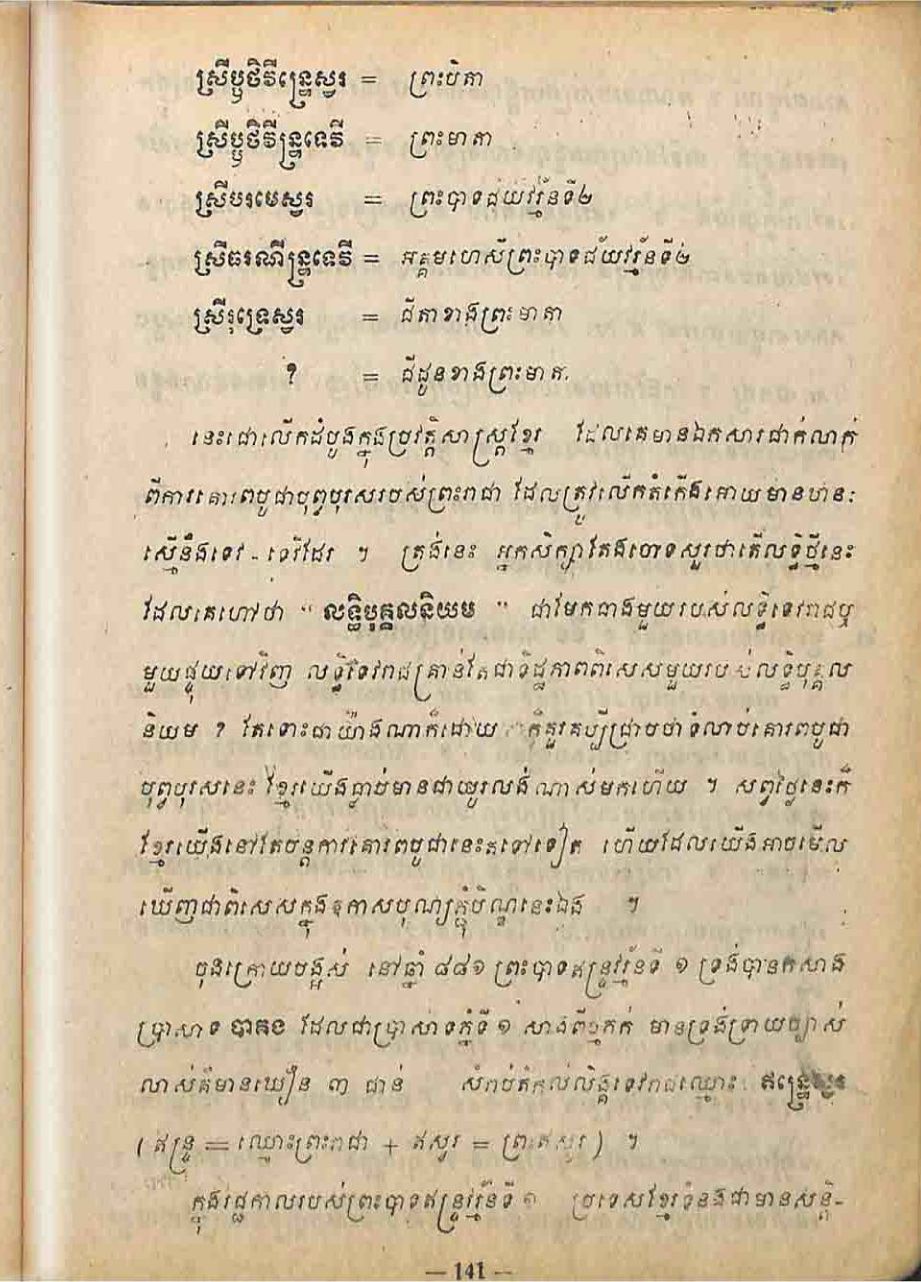 ស្រីប្ឫថិវីន្ទ្រេស្វរ = ព្រះបិតា
ស្រីប្ឫថិវីន្ទ្រទេវី = ព្រះមាតា
ស្រីបរមេស្វរ = ព្រះបាទជ័យវរ្ម័នទី២
ស្រីធរណីន្ទ្រទេវី = អគ្គមហេសីព្រះបាទជ័យវរ្ម័នទី២
ស្រីរុទ្រេស្វរ = ជីតាខាងព្រះមាតា
? = ជីដូនខាងព្រះមាតា
នេះជាលើកដំបូងក្នុងប្រវត្តិសាស្ត្រខ្មែរ ដែលគេមានឯកសារជាក់លាក់
ពីការគោរពបូជាបុព្វបុរសរបស់ព្រះរាជា ដែលត្រូវលើកតំកើងអោយមានឋានៈ
ស្មើនឹងទេវ - ទេវីដែរ ។ ត្រង់នេះ អ្នកសិក្សាតែងចោទសួរថាតើលទ្ធិថ្មីនេះ
ដែលគេហៅថា " លទ្ធិបុគ្គលនិយម " ជាមែកធាងមួយរបស់លទ្ធិទេវរាជឬ
មួយផ្ទុយទៅវិញ លទ្ធិទេវរាជគ្រាន់តែជាទិដ្ឋភាពពិសេសមួយរបស់លទ្ធិបុគ្គល
និយម ? តែទោះជាយ៉ាងណាក៏ដោយ ក៏គួរគប្បីជ្រាបថាទំលាប់គោរពបូជា
បុព្វបុរសនេះ ខ្មែរយើងធ្លាប់មានជាយូរលង់ណាស់មកហើយ ។ សព្វថ្ងៃនេះក៏
ខ្មែរយើងនៅតែបន្តការគោរពបូជានេះតទៅទៀត ហើយដែលយើងអាចមើល
ឃើញជាពិសេសក្នុងឧកាសបុណ្យភ្ជុំបិណ្ឌនេះឯង ។
ចុងក្រោយបង្អស់ នៅឆ្នាំ ៨៨១ ព្រះបាទឥន្ទ្រវរ្ម័នទី ១ ទ្រង់បានកសាង
ប្រាសាទ បាគង ដែលជាប្រាសាទភ្នំទី ១ សាងពីថ្មភក់ មានទ្រង់ទ្រាយច្បាស់
លាស់គឺមានឃឿន ៣ ជាន់ សំរាប់តំកល់លិង្គទេវរាជឈ្មោះ ឥន្ទ្រេស្វរ
( ឥន្ទ្រ = ឈ្មោះព្រះរាជា + ឥសូរ = ព្រះឥសូរ ) ។
ក្នុងរជ្ជកាលរបស់ព្រះបាទឥន្ទ្រវរ្ម័នទី ១ ប្រទេសខ្មែរទំនងជាមានសន្តិ-
— 141 —